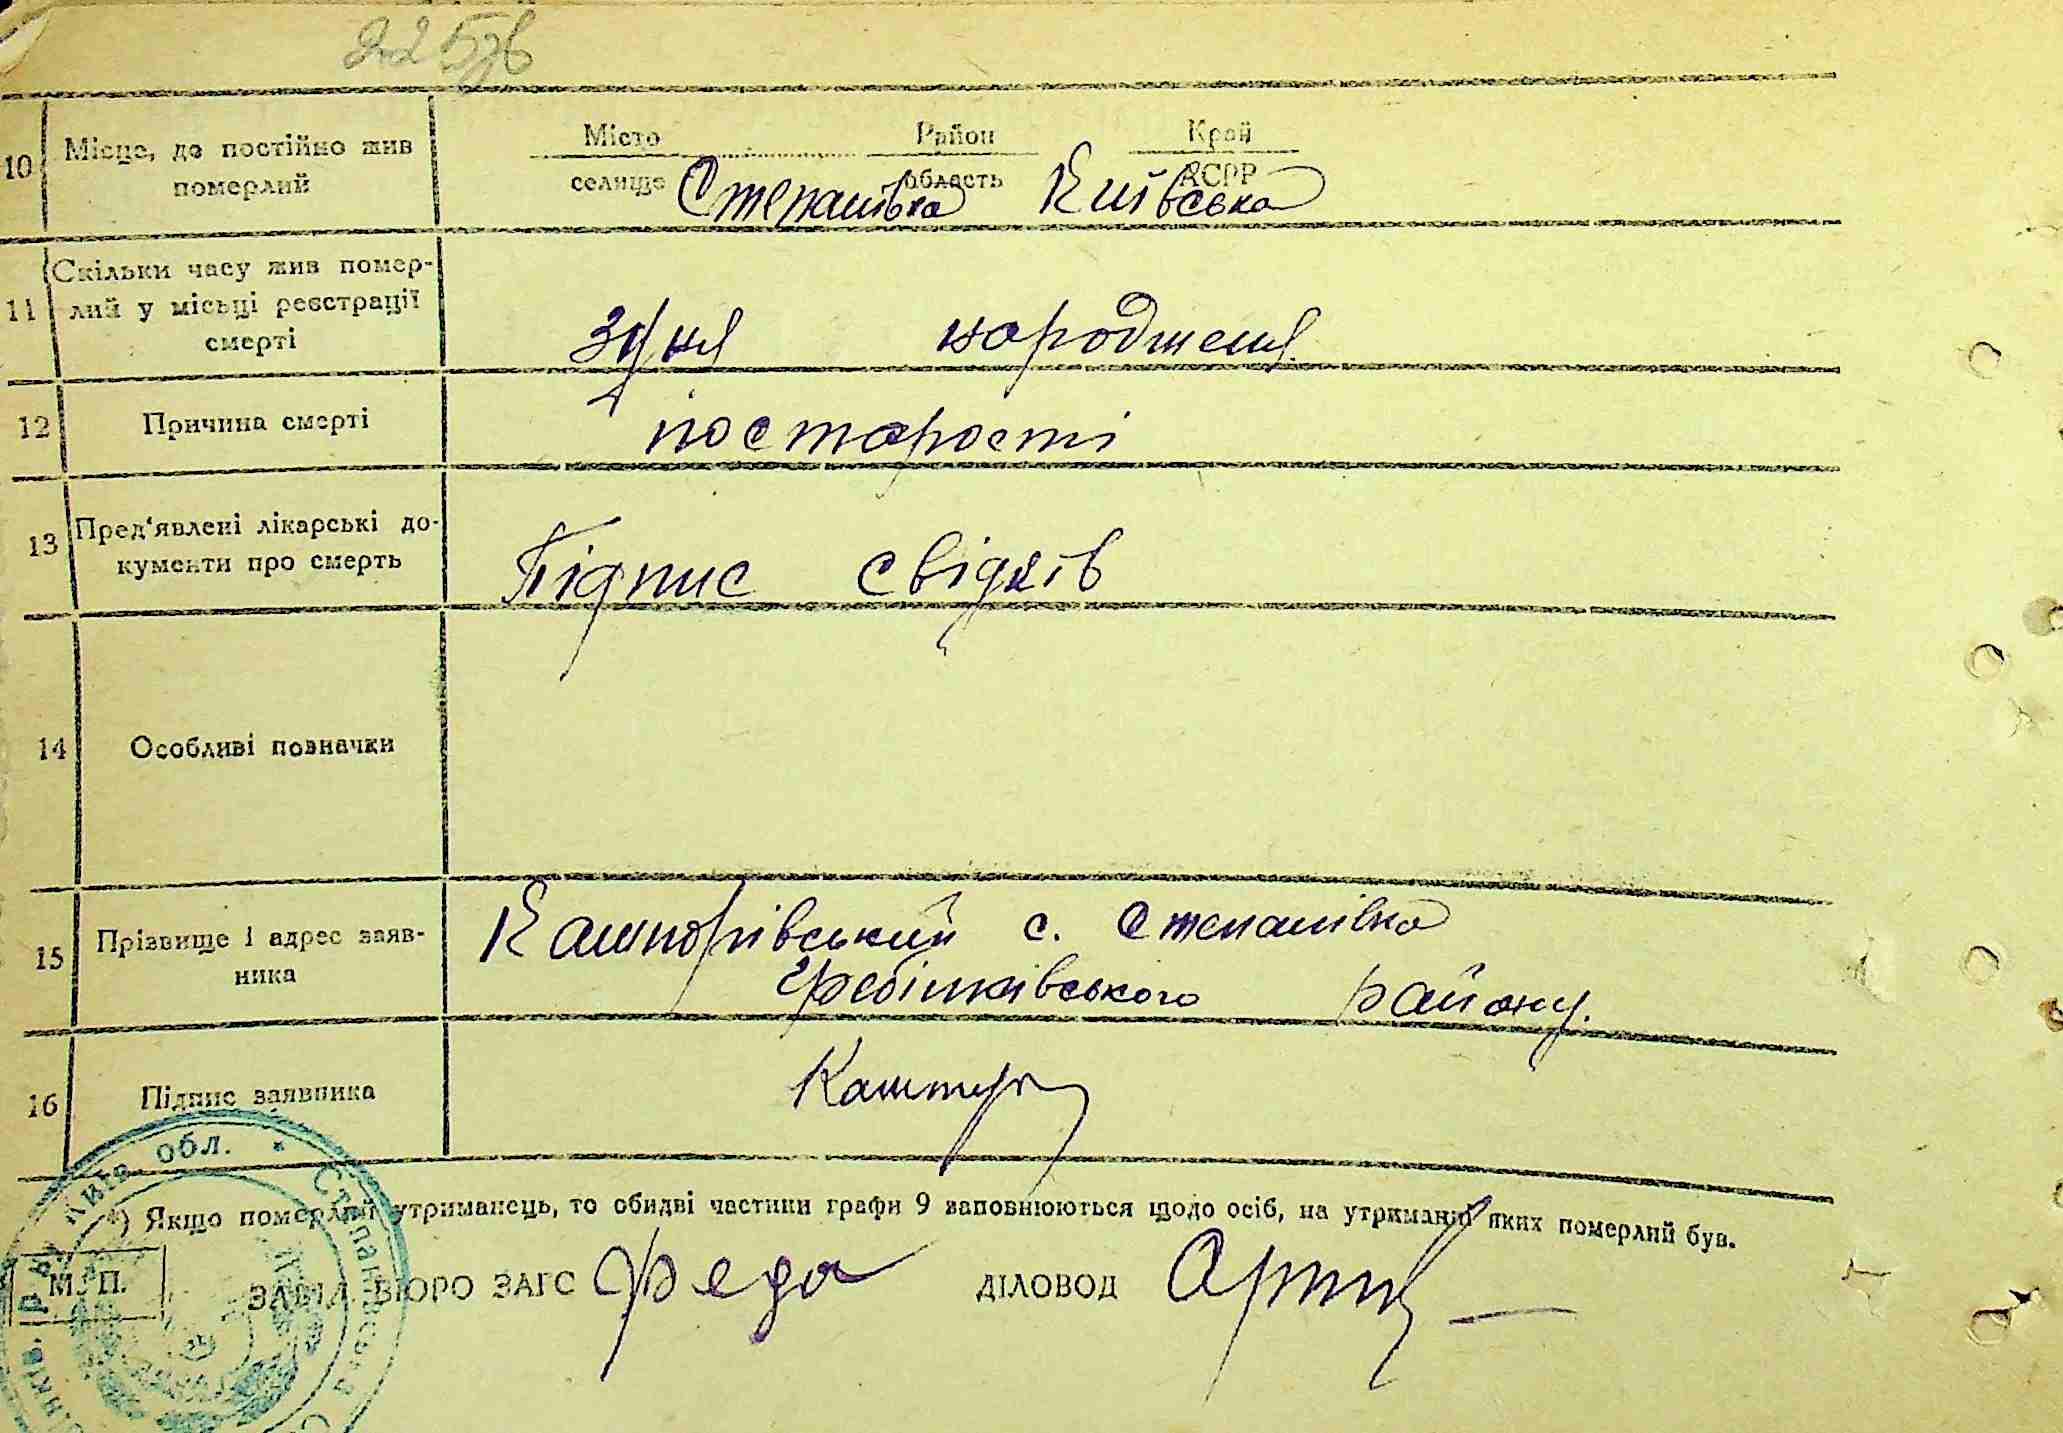 10 Місце, де постійно жив померлий
Місто Район Край
селище область АСРР
Степанівка Київська
11 Скільки часу жив помер-
лий у місьці реєстрації
смерті
здня народженя
12 Причина смерті
по старості
13 Пред'явлені лікарські до-
кументи про смерть
Підпис свідків
14 Особливі позначки
15 Прізвище і адрес заяв-
ника
с. Степанівка
Гребінківського району.
16 Підпис заявника
*) Якщо померлий утриманець, то обидві частини графи 9 заповнюються щодо осіб, на утриманні яких померлий був.
М. П.
ЗАВІД. БЮРО ЗАГС
ДІЛОВОД
обл. * Степанівська